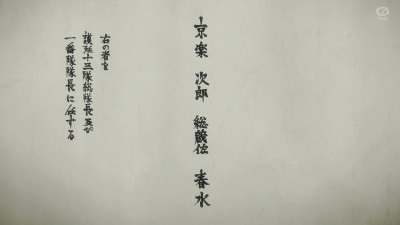 京楽 次郎 総蔵佐 春水
右の者を
護廷十三隊総隊長及び
一番隊隊長に任ずる